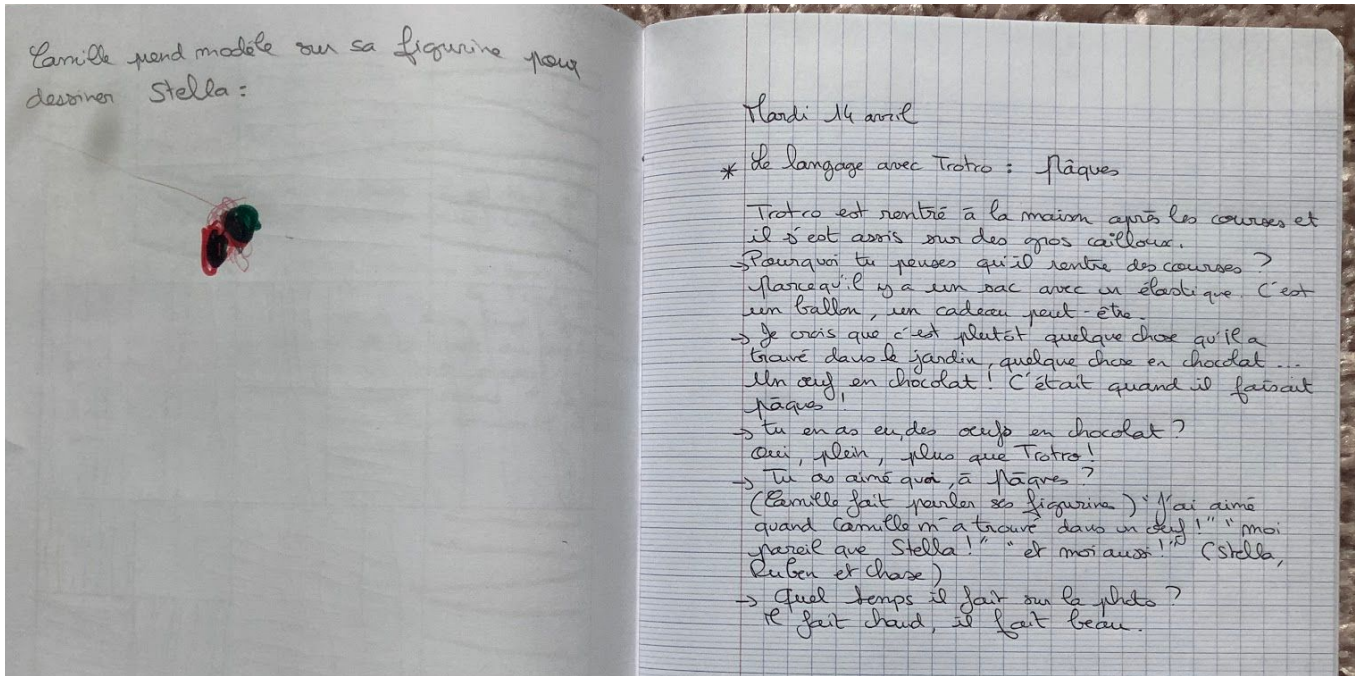 Camille prend modèle sur sa figurine pour
dessiner Stella :
Mardi 14 avril
* Le langage avec Trotro : Pâques
Trotro est rentré à la maison après les courses et
il s'est assis sur des gros cailloux.
→ Pourquoi tu penses qu'il rentre des courses ?
Parcequ'il y a un sac avec un élastique. C'est
un ballon, un cadeau peut-être.
→ Je crois que c'est plutôt quelque chose qu'il a
trouvé dans le jardin, quelque chose en chocolat ...
Un œuf en chocolat ! C'était quand il faisait
pâques !
→ Tu en as eu, des oeufs en chocolat ?
Oui, plein, plus que Trotro !
→ Tu as aimé quoi, à Pâques ?
(Camille fait parler ses figurines) "J'ai aimé
quand Camille m'a trouvé dans un œuf !" "moi
pareil que Stella !" "et moi aussi !" (Stella,
Ruben et Chase)
→ Quel temps il fait sur la photo ?
Il fait chaud, il fait beau.